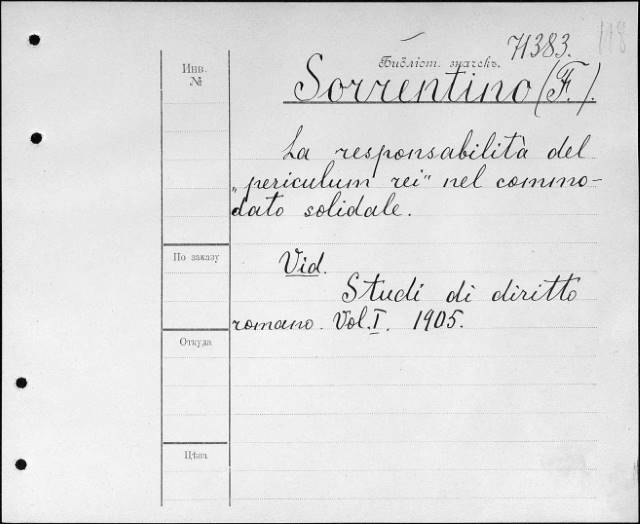 118
71383.
Библіот. значекъ.
Инв.
№
Sorrentino (F.).
La responsabilità del
„periculum rei“ nel commo-
dato solidale.
По заказу
Vid.
Studi di diritto
romano. Vol. I. 1905.
Откуда
Цѣна